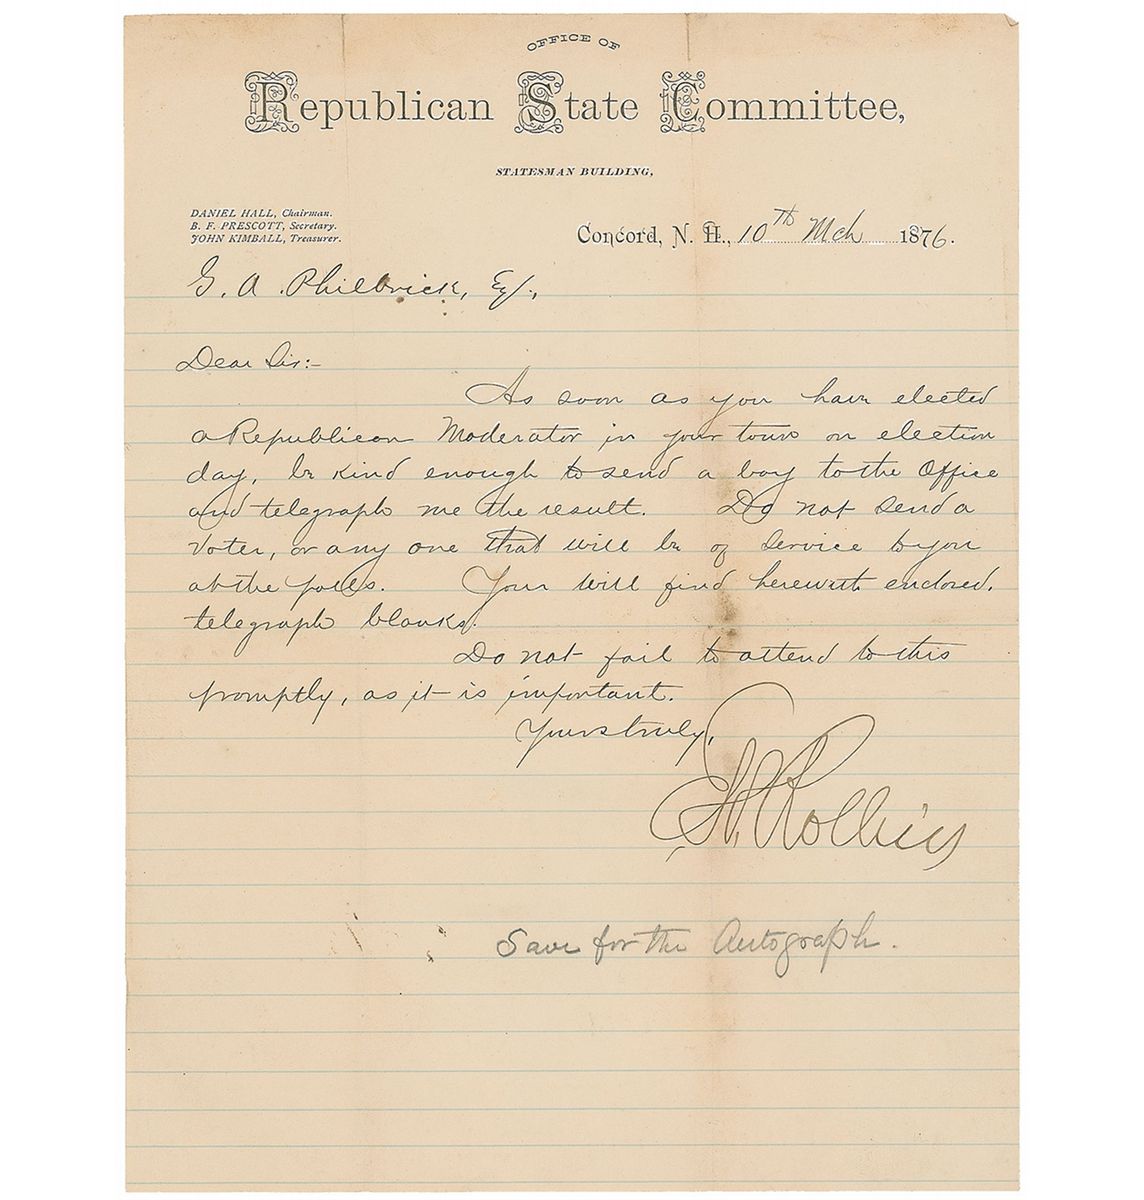 OFFICE OF
Republican State Committee,
STATESMAN BUILDING,
DANIEL HALL, Chairman.
B. F. PRESCOTT, Secretary.
JOHN KIMBALL, Treasurer.
Concord, N. H., 10th Mch 1876.
G. A. Philbrick, Esq.,
Dear Sir:-
As soon as you have elected
a Republican Moderator in your town on election
day, be kind enough to send a boy to the Office
and telegraph me the result. Do not send a
voter, or any one that will be of service to you
at the polls. Your will find herewith enclosed,
telegraph blanks.
Do not fail to attend to this
promptly, as it is important.
Yours truly,
Rollins
Save for the Autograph.